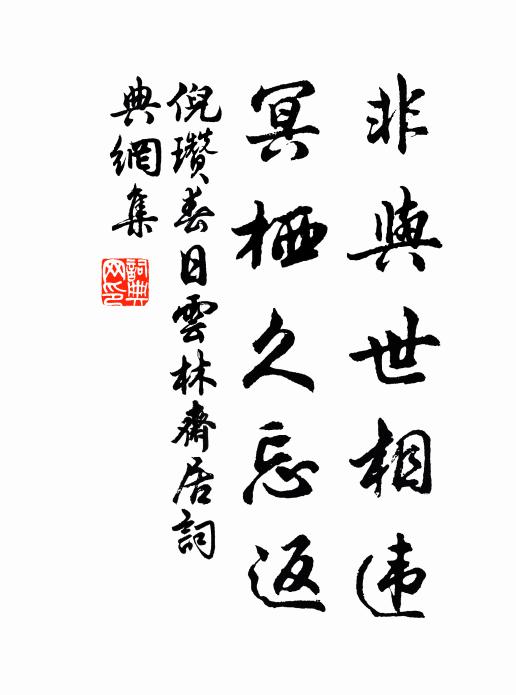 非與世相违
冥栖久忘返
倪瓚春日雲林齋居詞
典網集
詞典
网印